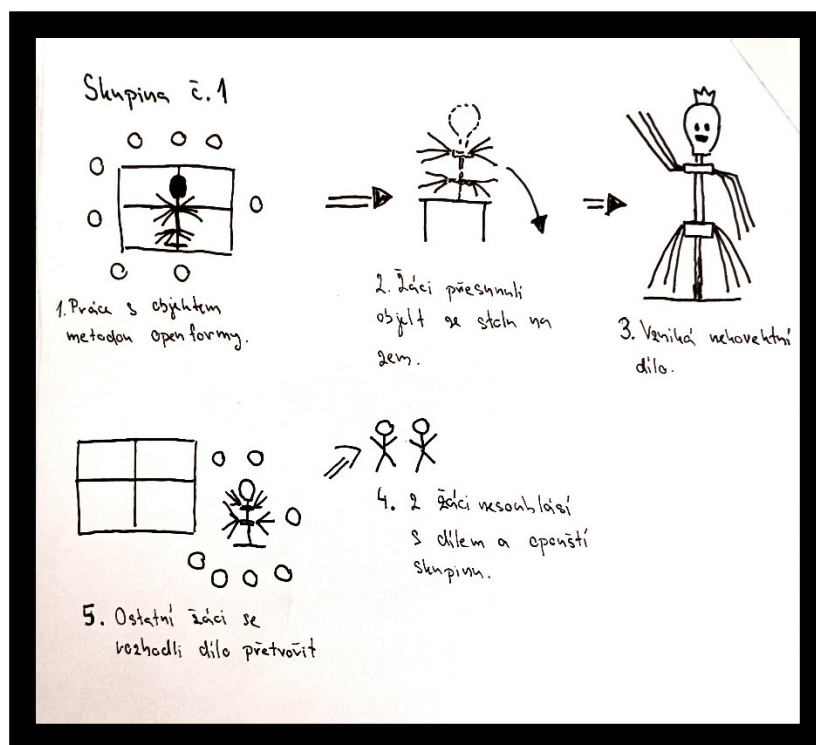 Skupina č.1
1. Práce s objektem
metodou openformy.
2. Žáci přesunuli
objekt ze stolu na
zem.
3. Vzniká nekorektní
dílo.
4. 2 žáci nesouhlasí
s dílem a opouští
skupinu.
5. Ostatní žáci se
rozhodli dílo přetvořit